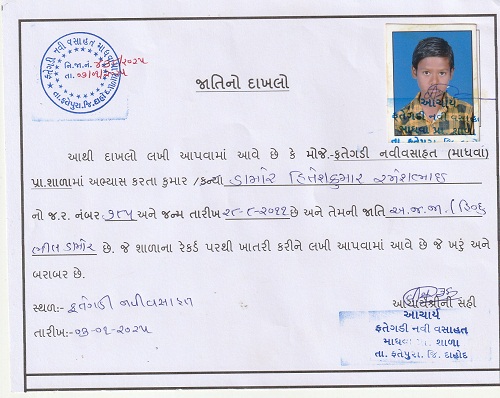 જાતિનો દાખલો
આચાર્ય
ફતેગડી નવી વસાહત
તા. ફતેપુરા. જિ. દાહોદ
આથી દાખલો લખી આપવામાં આવે છે કે મોજે.-ફતેગડી નવીવસાહત (માધવા)
પ્રા.શાળામાં અભ્યાસ કરતા કુમાર /કન્યા ડામોર હિતેશકુમાર રમેશભાઇ
નો જ.ર. નંબર ૧૬૫ અને જન્મ તારીખ ૨૮-૮-૨૦૧૧ છે અને તેમની જાતિ અ.જ.જા. ( હિન્દુ
ભીલ ડામોર છે. જે શાળાના રેકર્ડ પરથી ખાતરી કરીને લખી આપવામાં આવે છે જે ખરું અને
બરાબર છે.
સ્થળ:- ફતેગડી નવીવસાહત
આચાર્યશ્રીની સહી
તારીખ:-૦૩-૦૧-૨૦૨૫
આચાર્ય
ફતેગડી નવી વસાહત
માધવા પ્રા. શાળા
તા. ફતેપુરા. જિ. દાહોદ